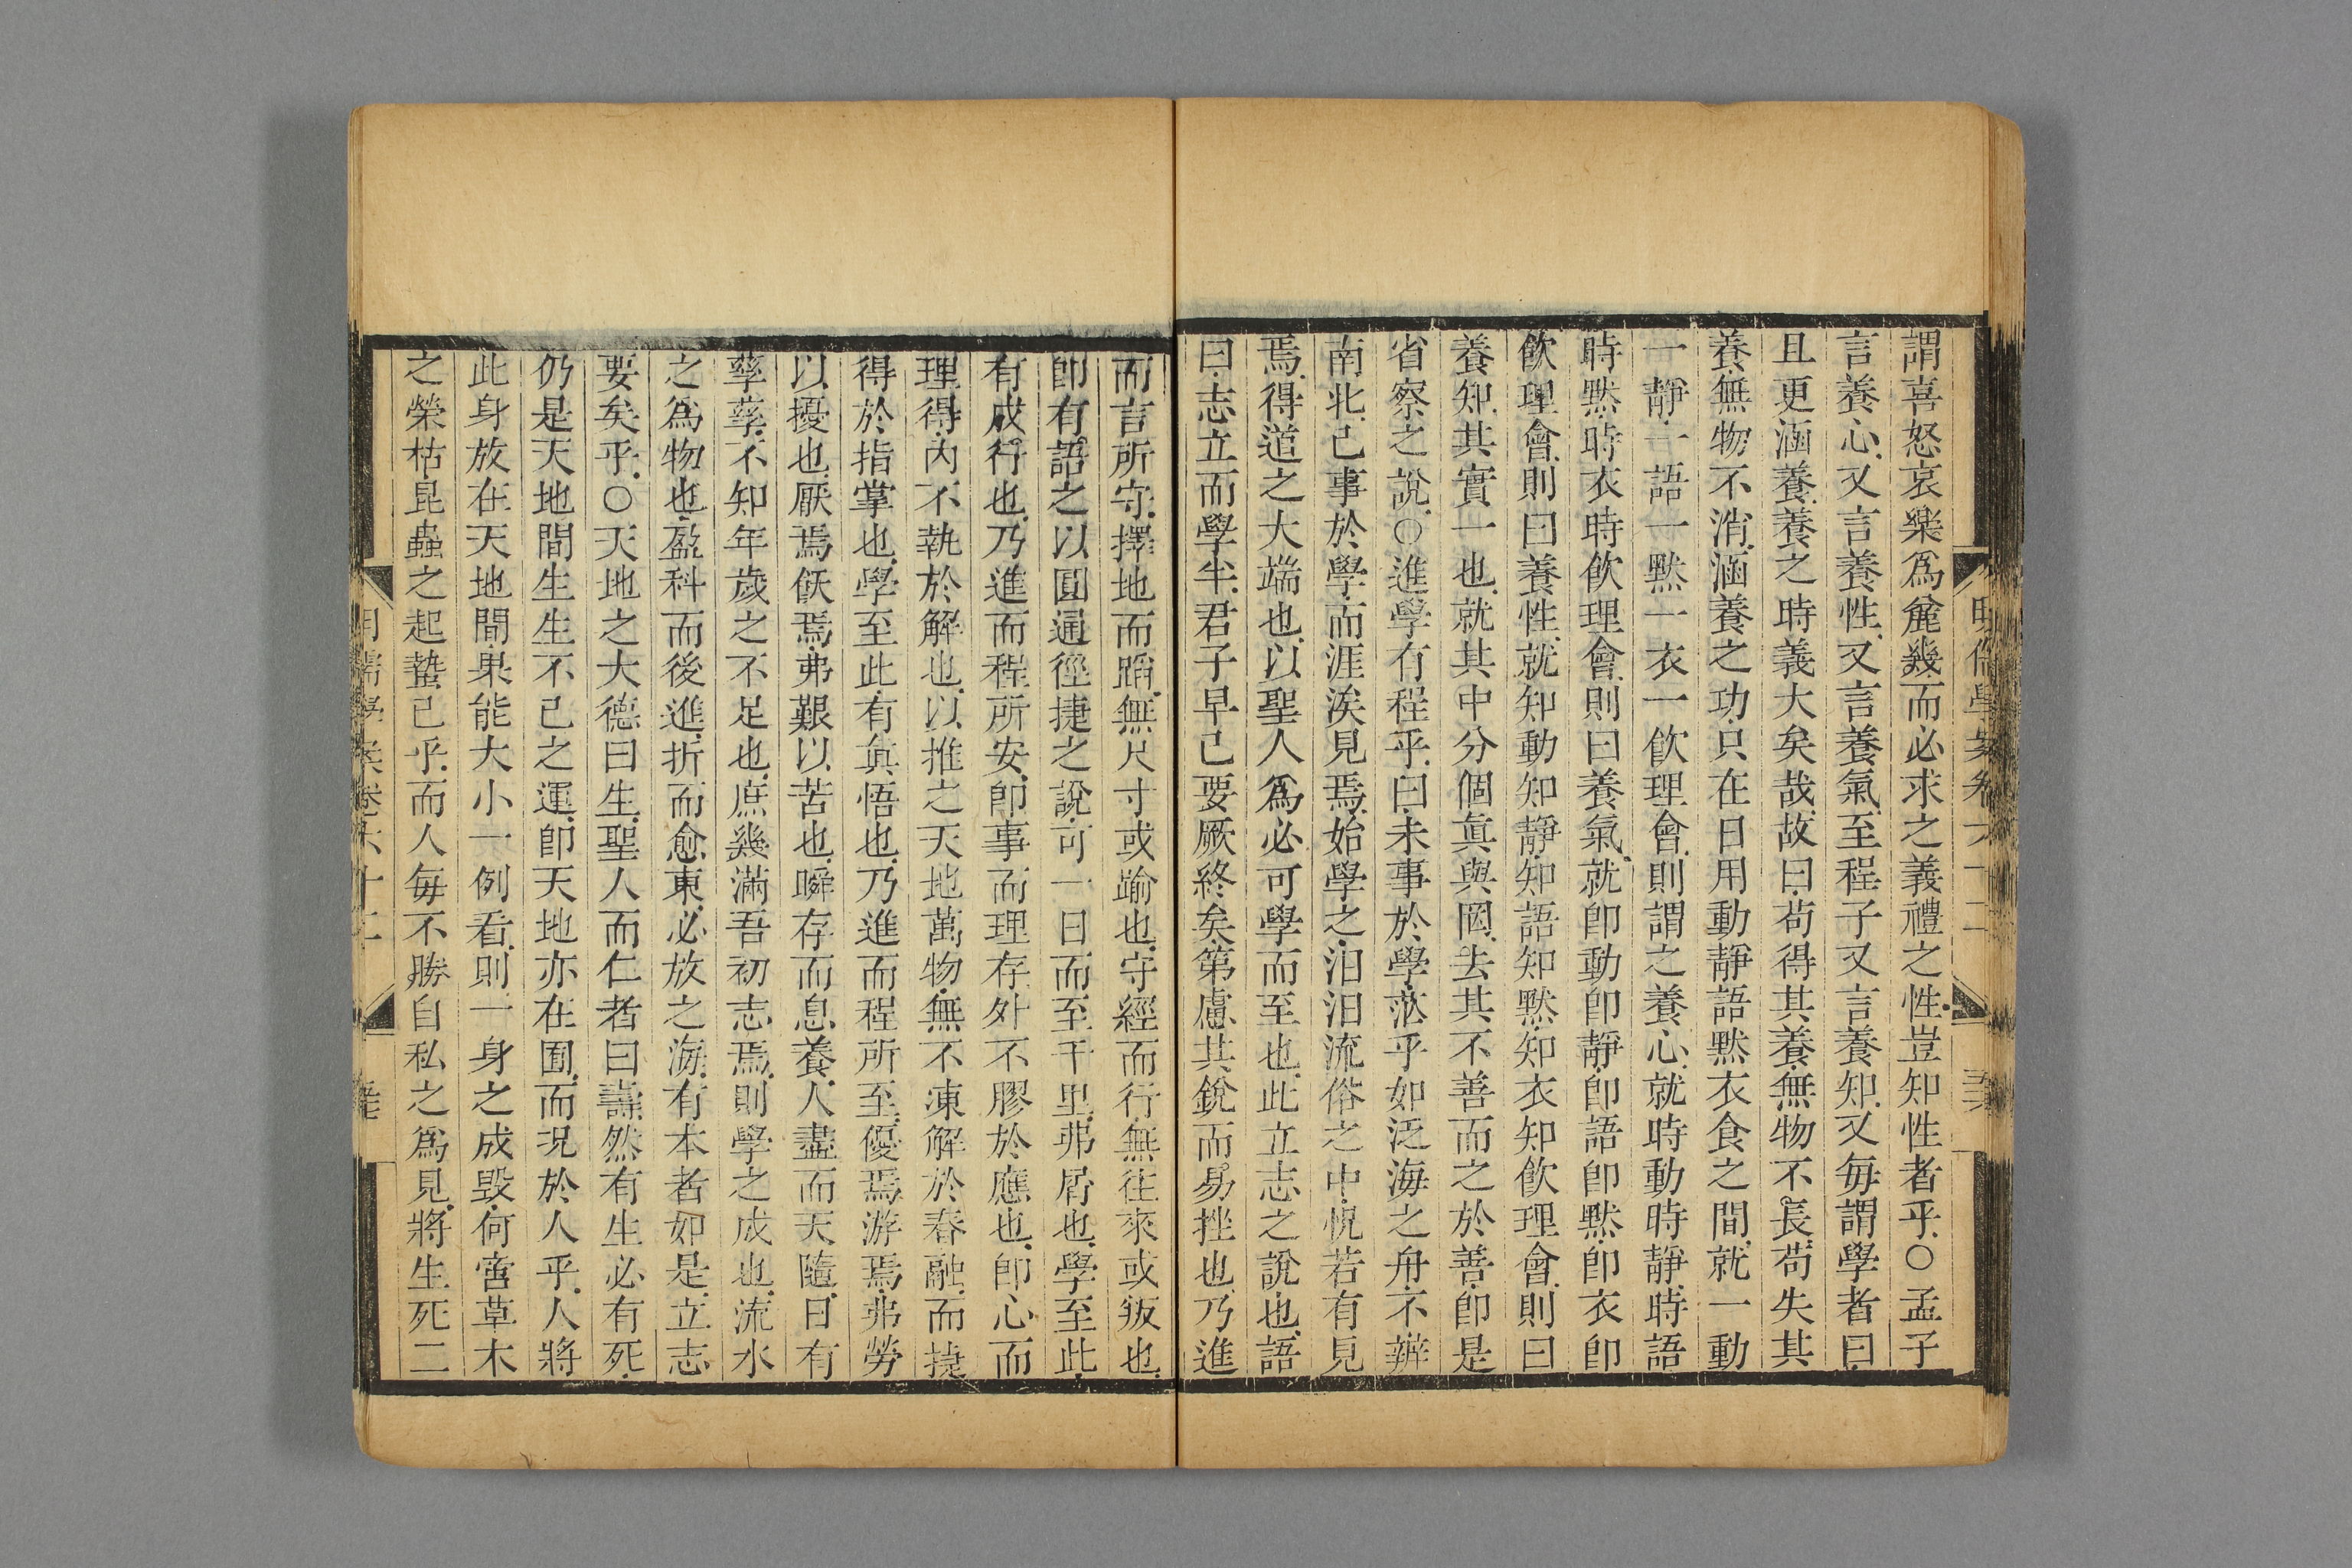 謂喜怒哀樂爲麄幾而必求之義禮之性豈知性者乎○孟子
言養心又言養性又言養氣至程子又言養知又每謂學者曰
且更涵養養之時義大矣哉故曰苟得其養無物不長苟失其
養無物不消涵養之功只在日用動靜語默衣食之間就一動
一靜一語一默一衣一飮理會則謂之養心就時動時靜時語
時默時衣時飮理會則曰養氣就卽動卽靜卽語卽默卽衣卽
飮理會則曰養性就知動知靜知語知默知衣知飮理會則曰
養知其實一也就其中分個眞與罔去其不善而之於善卽是
省察之說○進學有程乎曰未事於學茫乎如泛海之舟不辨
南北已事於學而涯涘見焉始學之汩汩流俗之中恍若有見
焉得道之大端也以聖人爲必可學而至也此立志之說也語
曰志立而學半君子早已要厥終矣第慮其銳而易挫也乃進
而言所守擇地而蹈無尺寸或踰也守經而行無往來或叛也
卽有語之以圓通徑捷之說可一日而至千里弗屑也學至此
有成行也乃進而程所安卽事而理存外不膠於應也卽心而
理得內不執於解也以推之天地萬物無不凍解於春融而捷
得於指掌也學至此有眞悟也乃進而程所至優焉游焉弗勞
以擾也厭焉飫焉弗艱以苦也瞬存而息養人盡而天隨日有
孳孳不知年歲之不足也庶幾滿吾初志焉則學之成也流水
之爲物也盈科而後進折而愈東必放之海有本者如是立志
要矣乎○天地之大德曰生聖人而仁者曰壽然有生必有死
仍是天地間生生不已之運卽天地亦在囿而況於人乎人將
此身放在天地間果能大小一例看則一身之成毀何啻草木
之榮枯昆蟲之起蟄已乎而人每不勝自私之爲見將生死二
明儒學案卷六十二
明儒學案卷六十二